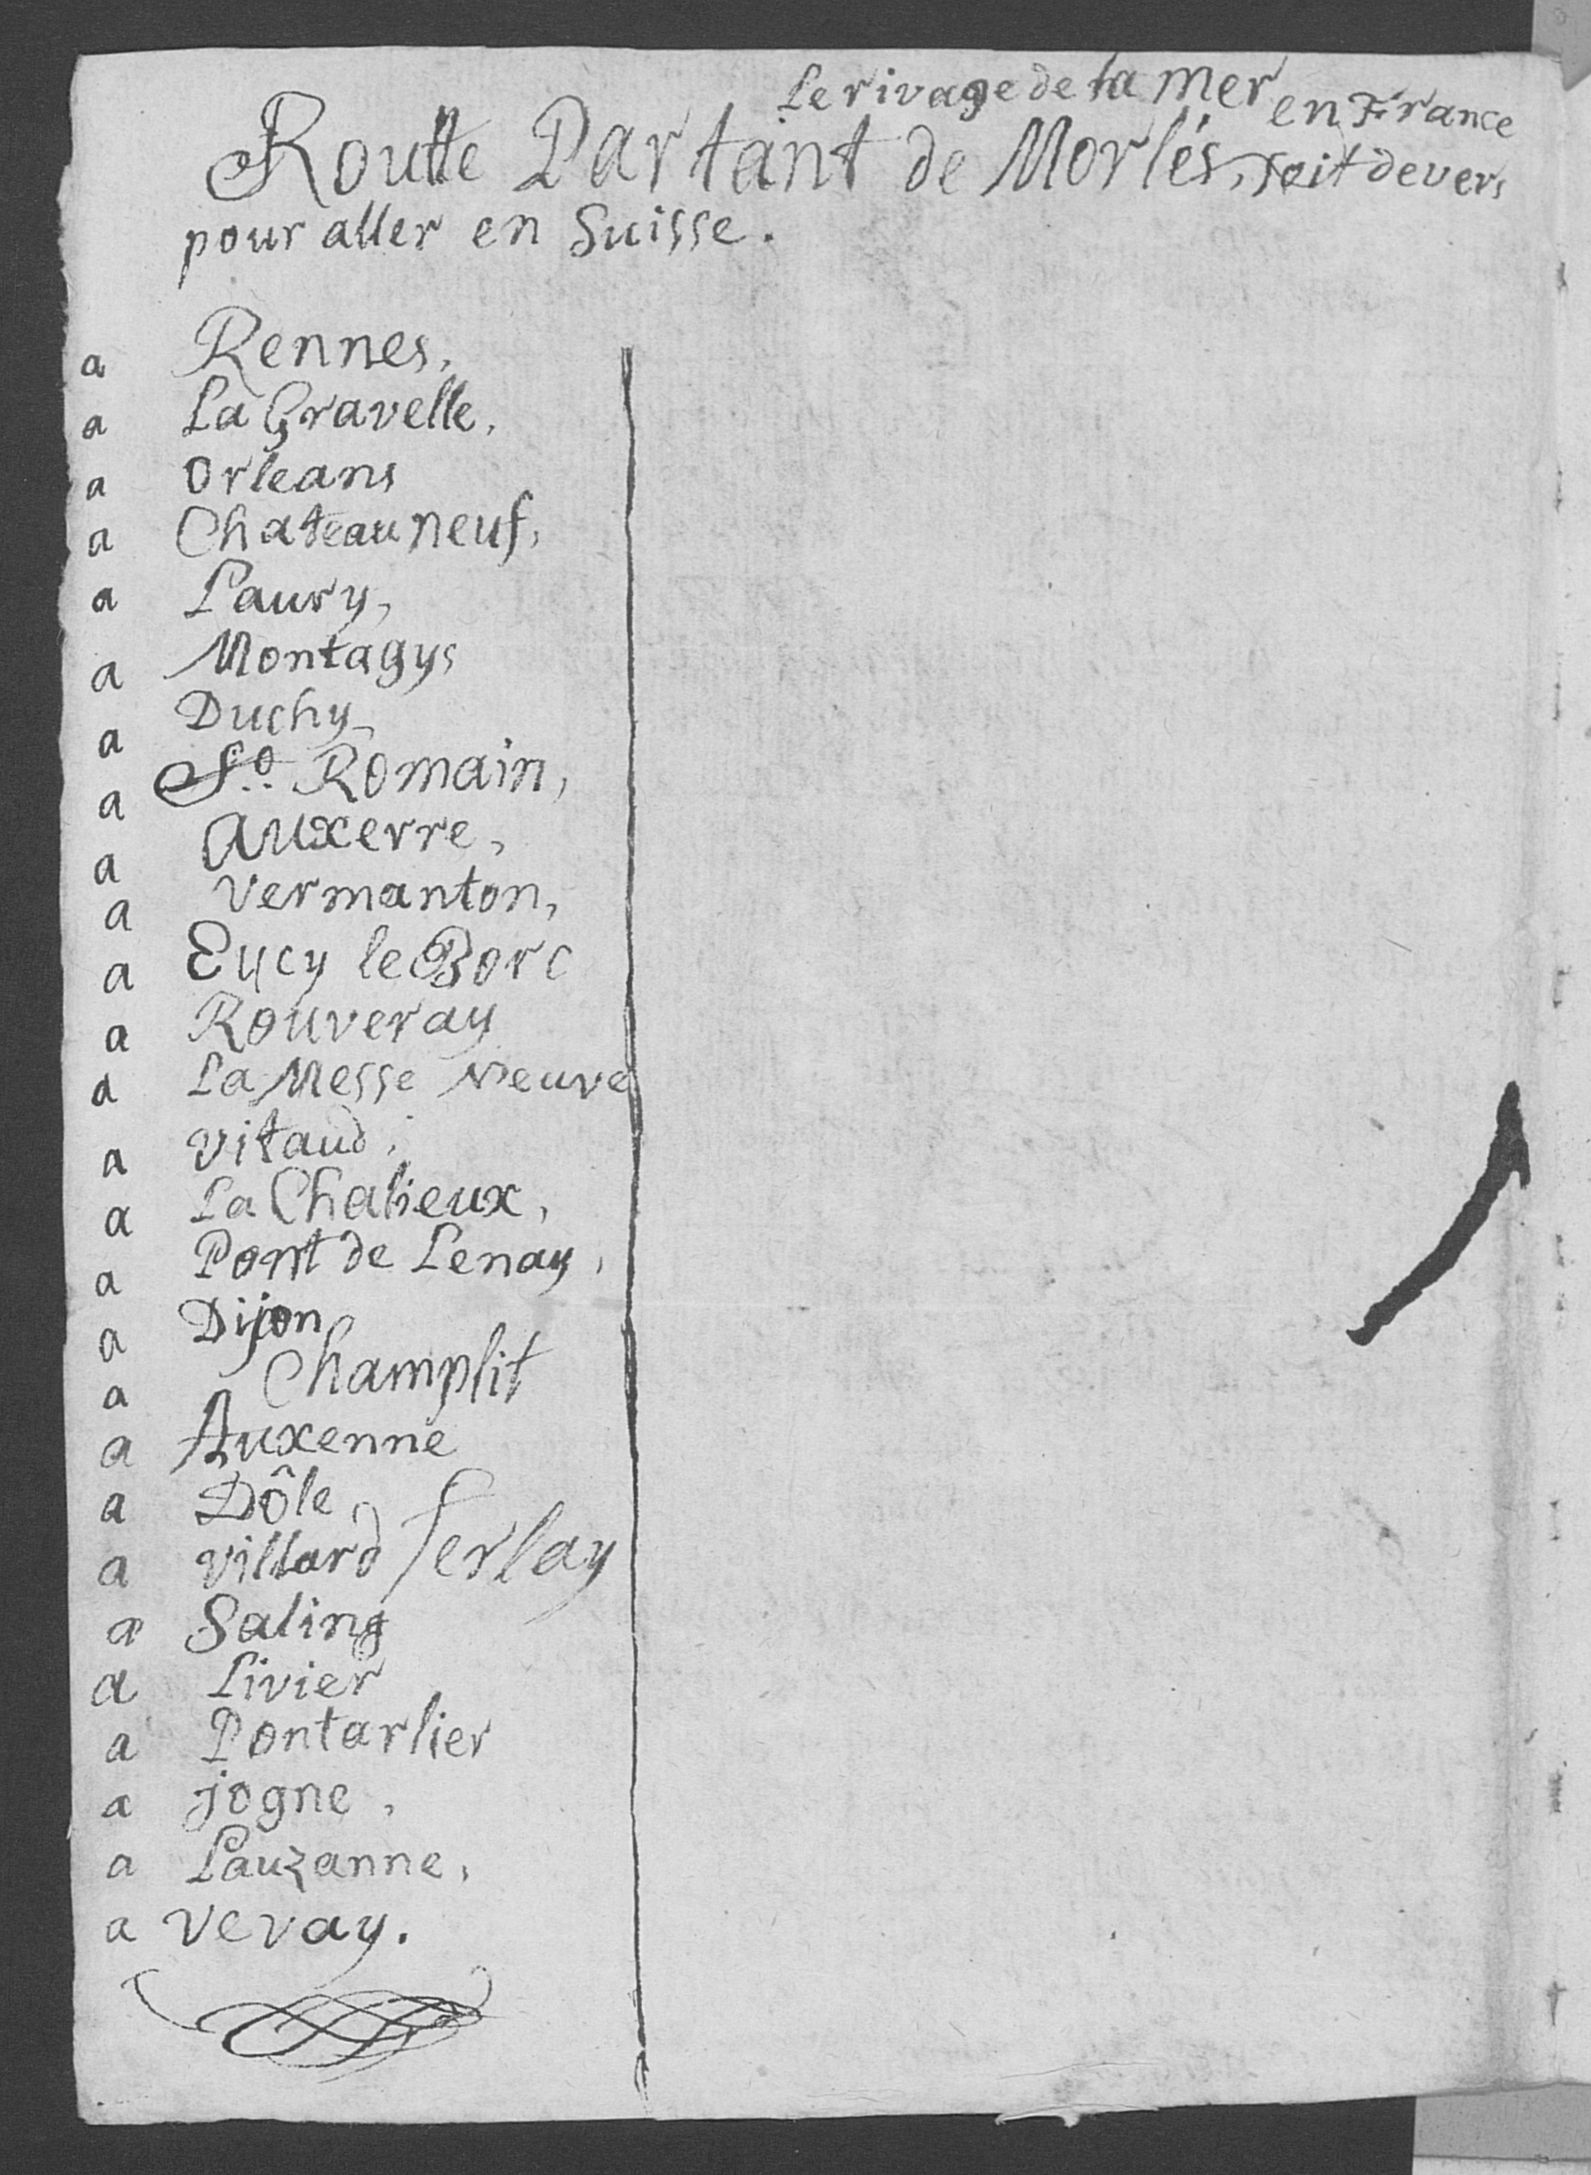 Le rivage de la Mer en France
Routte Partant de Morlés, soit devers
pour aller en Suisse.
a Rennes,
a La Gravelle,
a Orleans
a Chateauneuf,
a Laury,
a Montagys
a Duchy
a St. Romain,
a Auxerre,
a Vermanton,
a Eucy le Borc
a Rouveray
a La Messe Neuve
a Vitaud,
a La Chalieux,
a Pont de Lenay,
a Dijon
a Champlit
a Auxenne
a Dôle
a Villard ferlay
a Saling
a Livier
a Pontarlier
a jogne,
a Lauzanne,
a Vevay.